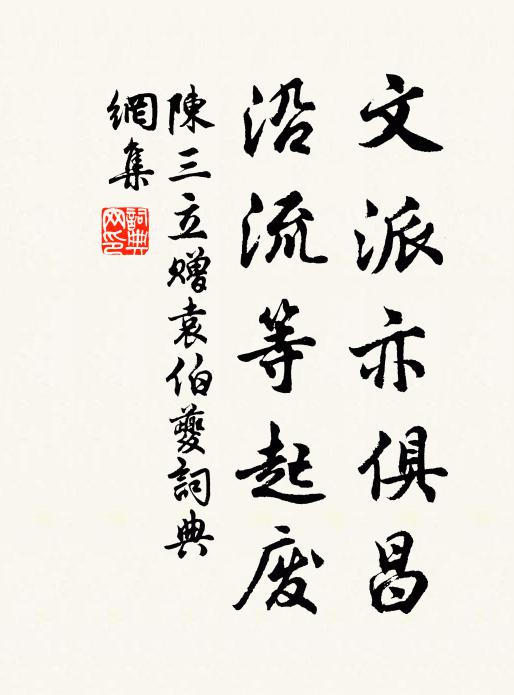 文派亦俱昌
沿流等起废
陳三立贈袁伯夔詞典
網集
詞典網印